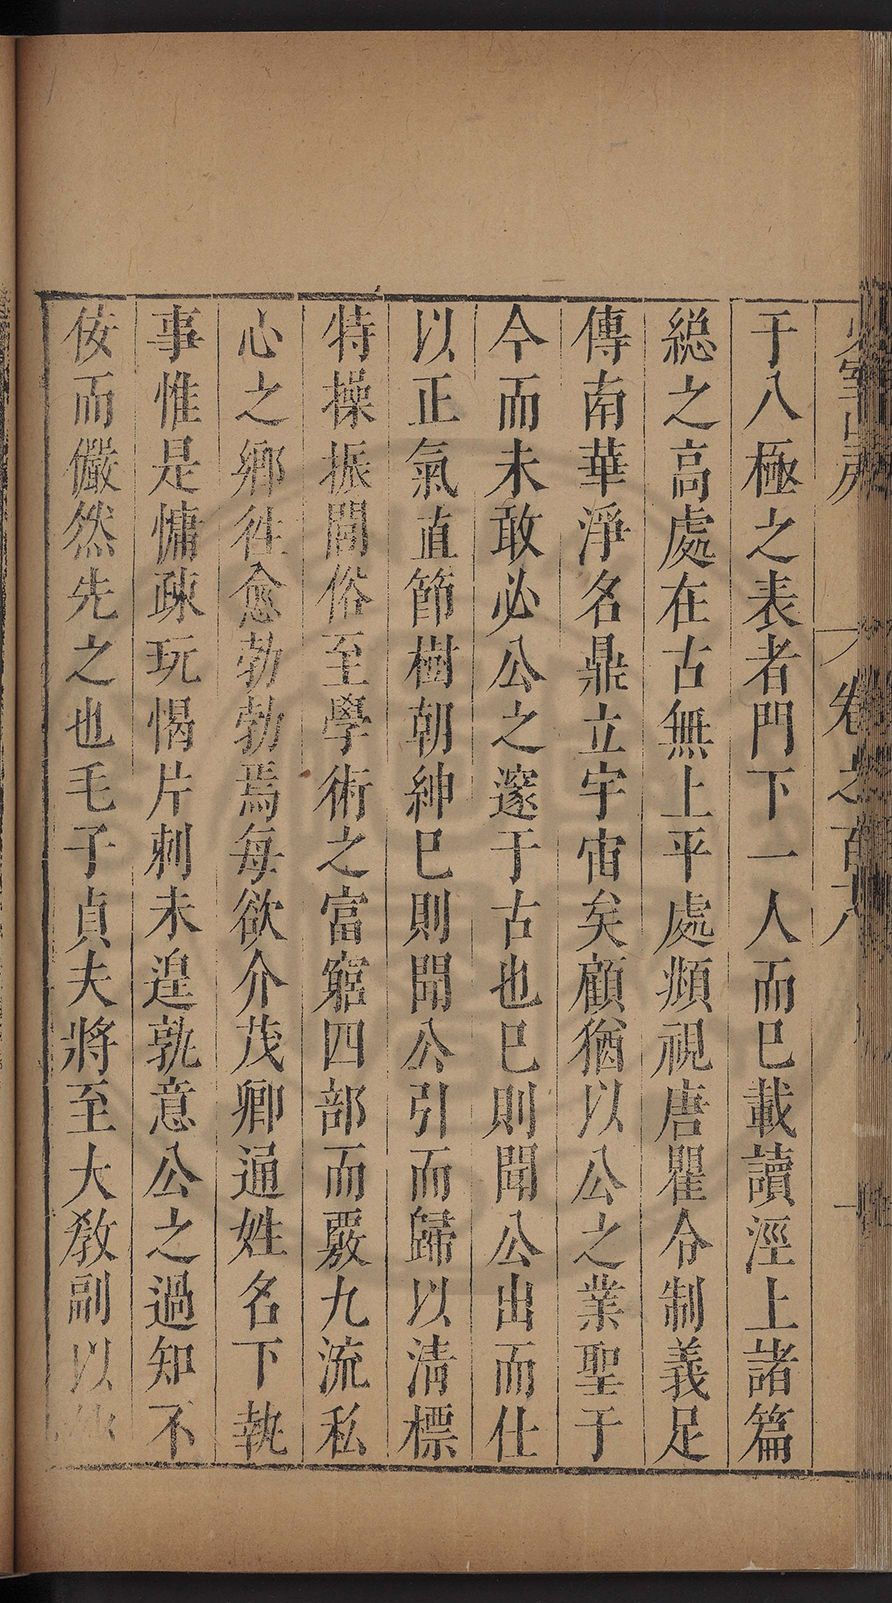 少室山房 卷之百十八 一
于八極之表者門下一人而已載讀淫上諸篇
総之高處在古無上平處頫視唐瞿令制義足
傳南華淨名鼎立宇宙矣顧猶以公之業聖于
今而未敢必公之邃于古也已則聞公出而仕
以正氣直節樹朝紳已則聞公引而歸以淸標
特操振閭俗至學術之富窮四部而覈九流私
心之鄉徃愈勃勃焉每欲介茂卿通姓名下執
事惟是慵疎玩愒片刺未遑孰意公之過知不
佞而儼然先之也毛子貞夫將至大教副以